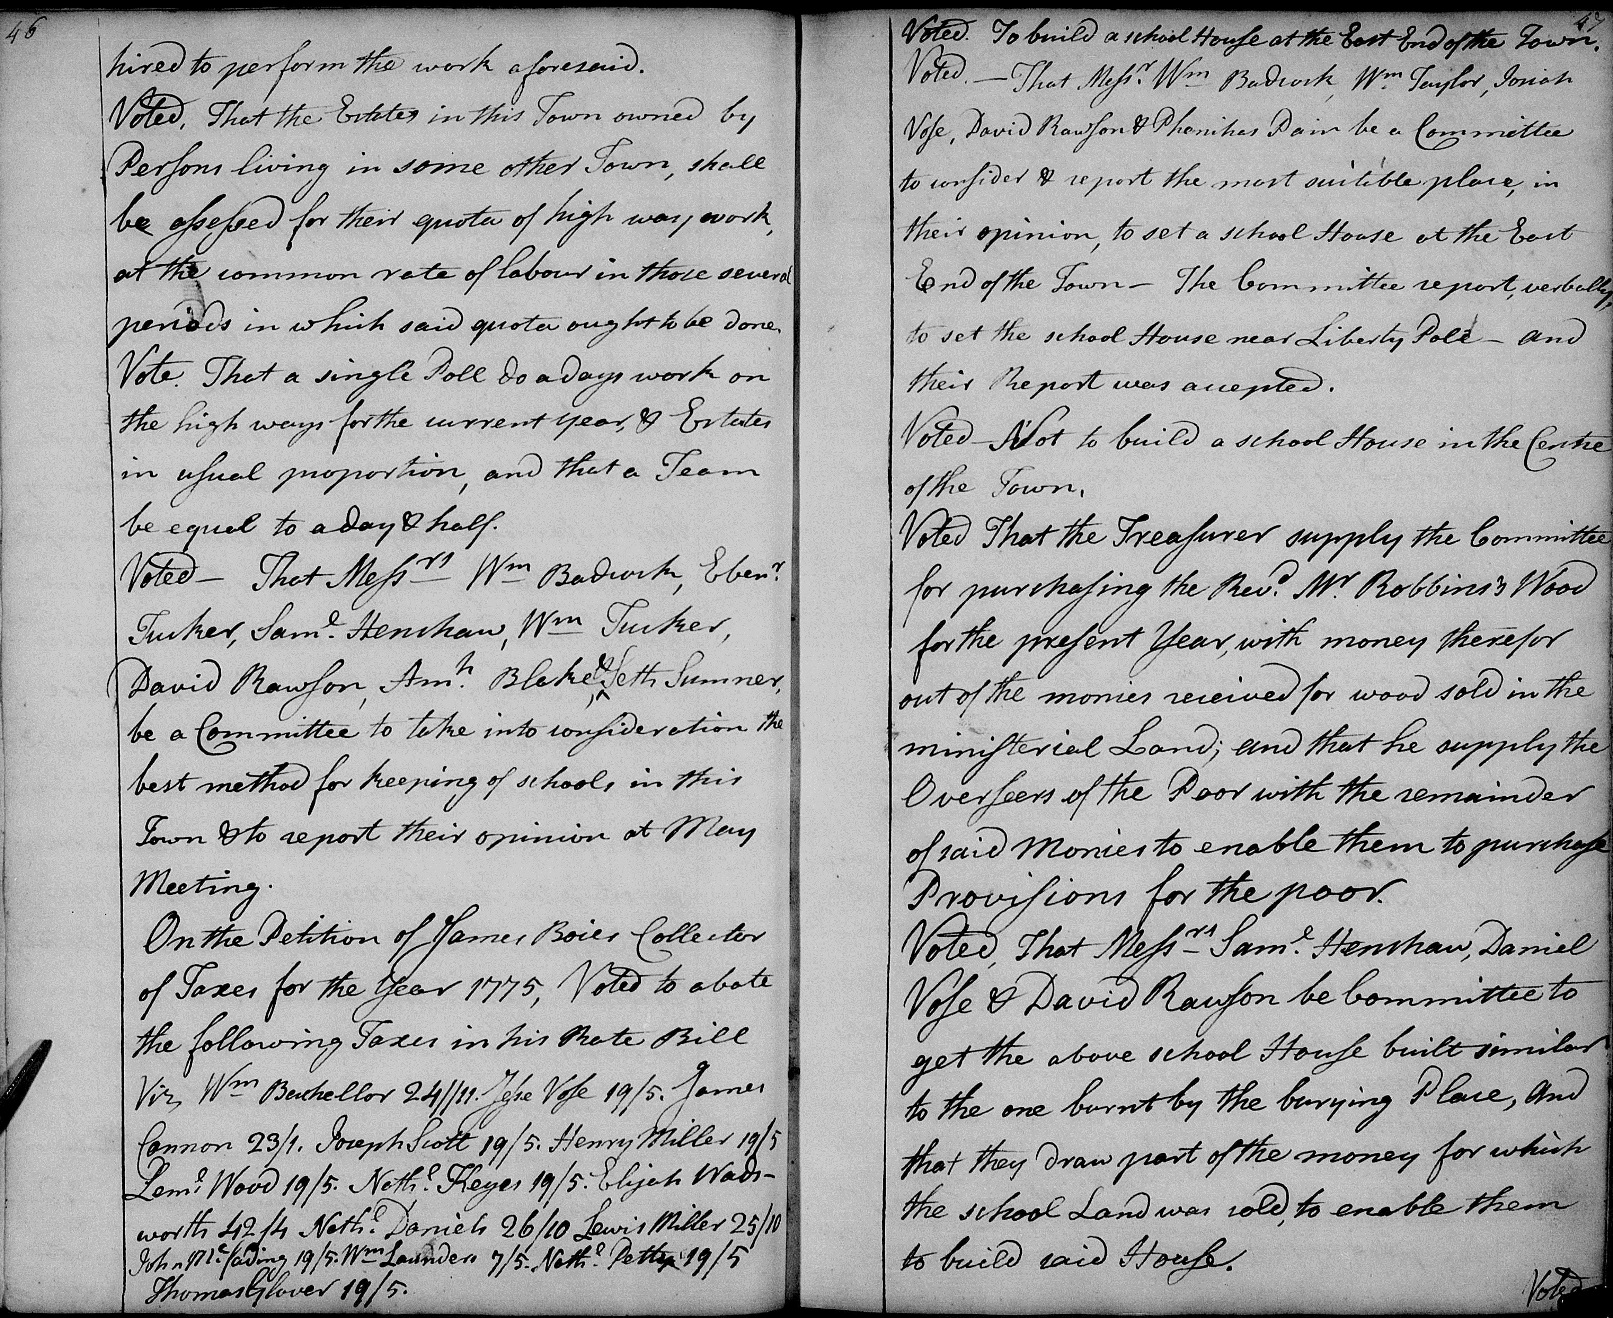 46
hired to perform the work aforesaid.
Voted, That the Estates in this Town owned by
Persons living in some other Town, shall
be assessed for their quota of high way work,
at the common rate of labour in those several
periods in which said quota ought to be done.
Vote. That a single Poll do a days work on
the high ways for the current year, & Estates
in usual proportion, and that a Team
be equal to a day & half.
Voted – That Messrs Wm Badcock, Ebenr.
Tucker, Saml. Henshaw, Wm Tucker,
David Rawson, Amh. Blake & Seth Sumner,
be a Committee to take into consideration the
best method for keeping of schools in this
Town & to report their opinion at May
Meeting.
On the Petition of James Boies Collector
of Taxes for the Year 1775, Voted to abate
the following Taxes in his Rate Bill
Viz Wm Bachellor 24/11. Jesse Vose 19/5. James
Cannon 23/1. Joseph Scott 19/5. Henry Miller 19/5
Leml. Wood 19/5. Nathl. Keyes 19/5. Elijah Wads-
worth 42/4 Nathl. Daniels 26/10 Lewis Miller 25/10
John 19/5. Wm Saunders 7/5. Nathl. Petty 19/5
Thomas Glover 19/5.
47
Voted. To build a school House at the East End of the Town.
Voted. – That Messr. Wm Badcock, Wm. Taylor, Josiah
Vose, David Rawson & Phenihas Pain be a Committee
to consider & report the most suitible place, in
their opinion, to set a school House at the East
End of the Town – The Committee report, verbally,
to set the school House near Liberty Pole – and
their Report was accepted.
Voted – Not to build a school House in the Centre
of the Town.
Voted That the Treasurer supply the Committee
for purchasing the Revd. Mr. Robbins's Wood
for the present Year, with money therefor
out of the monies received for wood sold in the
ministerial Land; and that he supply the
Overseers of the Poor with the remainder
of said Monies to enable them to purchase
Provisions for the poor.
Voted, That Messrs Saml. Henshaw, Daniel
Vose & David Rawson be Committee to
get the above school House built similar
to the one burnt by the burying Place, and
that they draw part of the money for which
the school Land was sold, to enable them
to build said House.
Voted